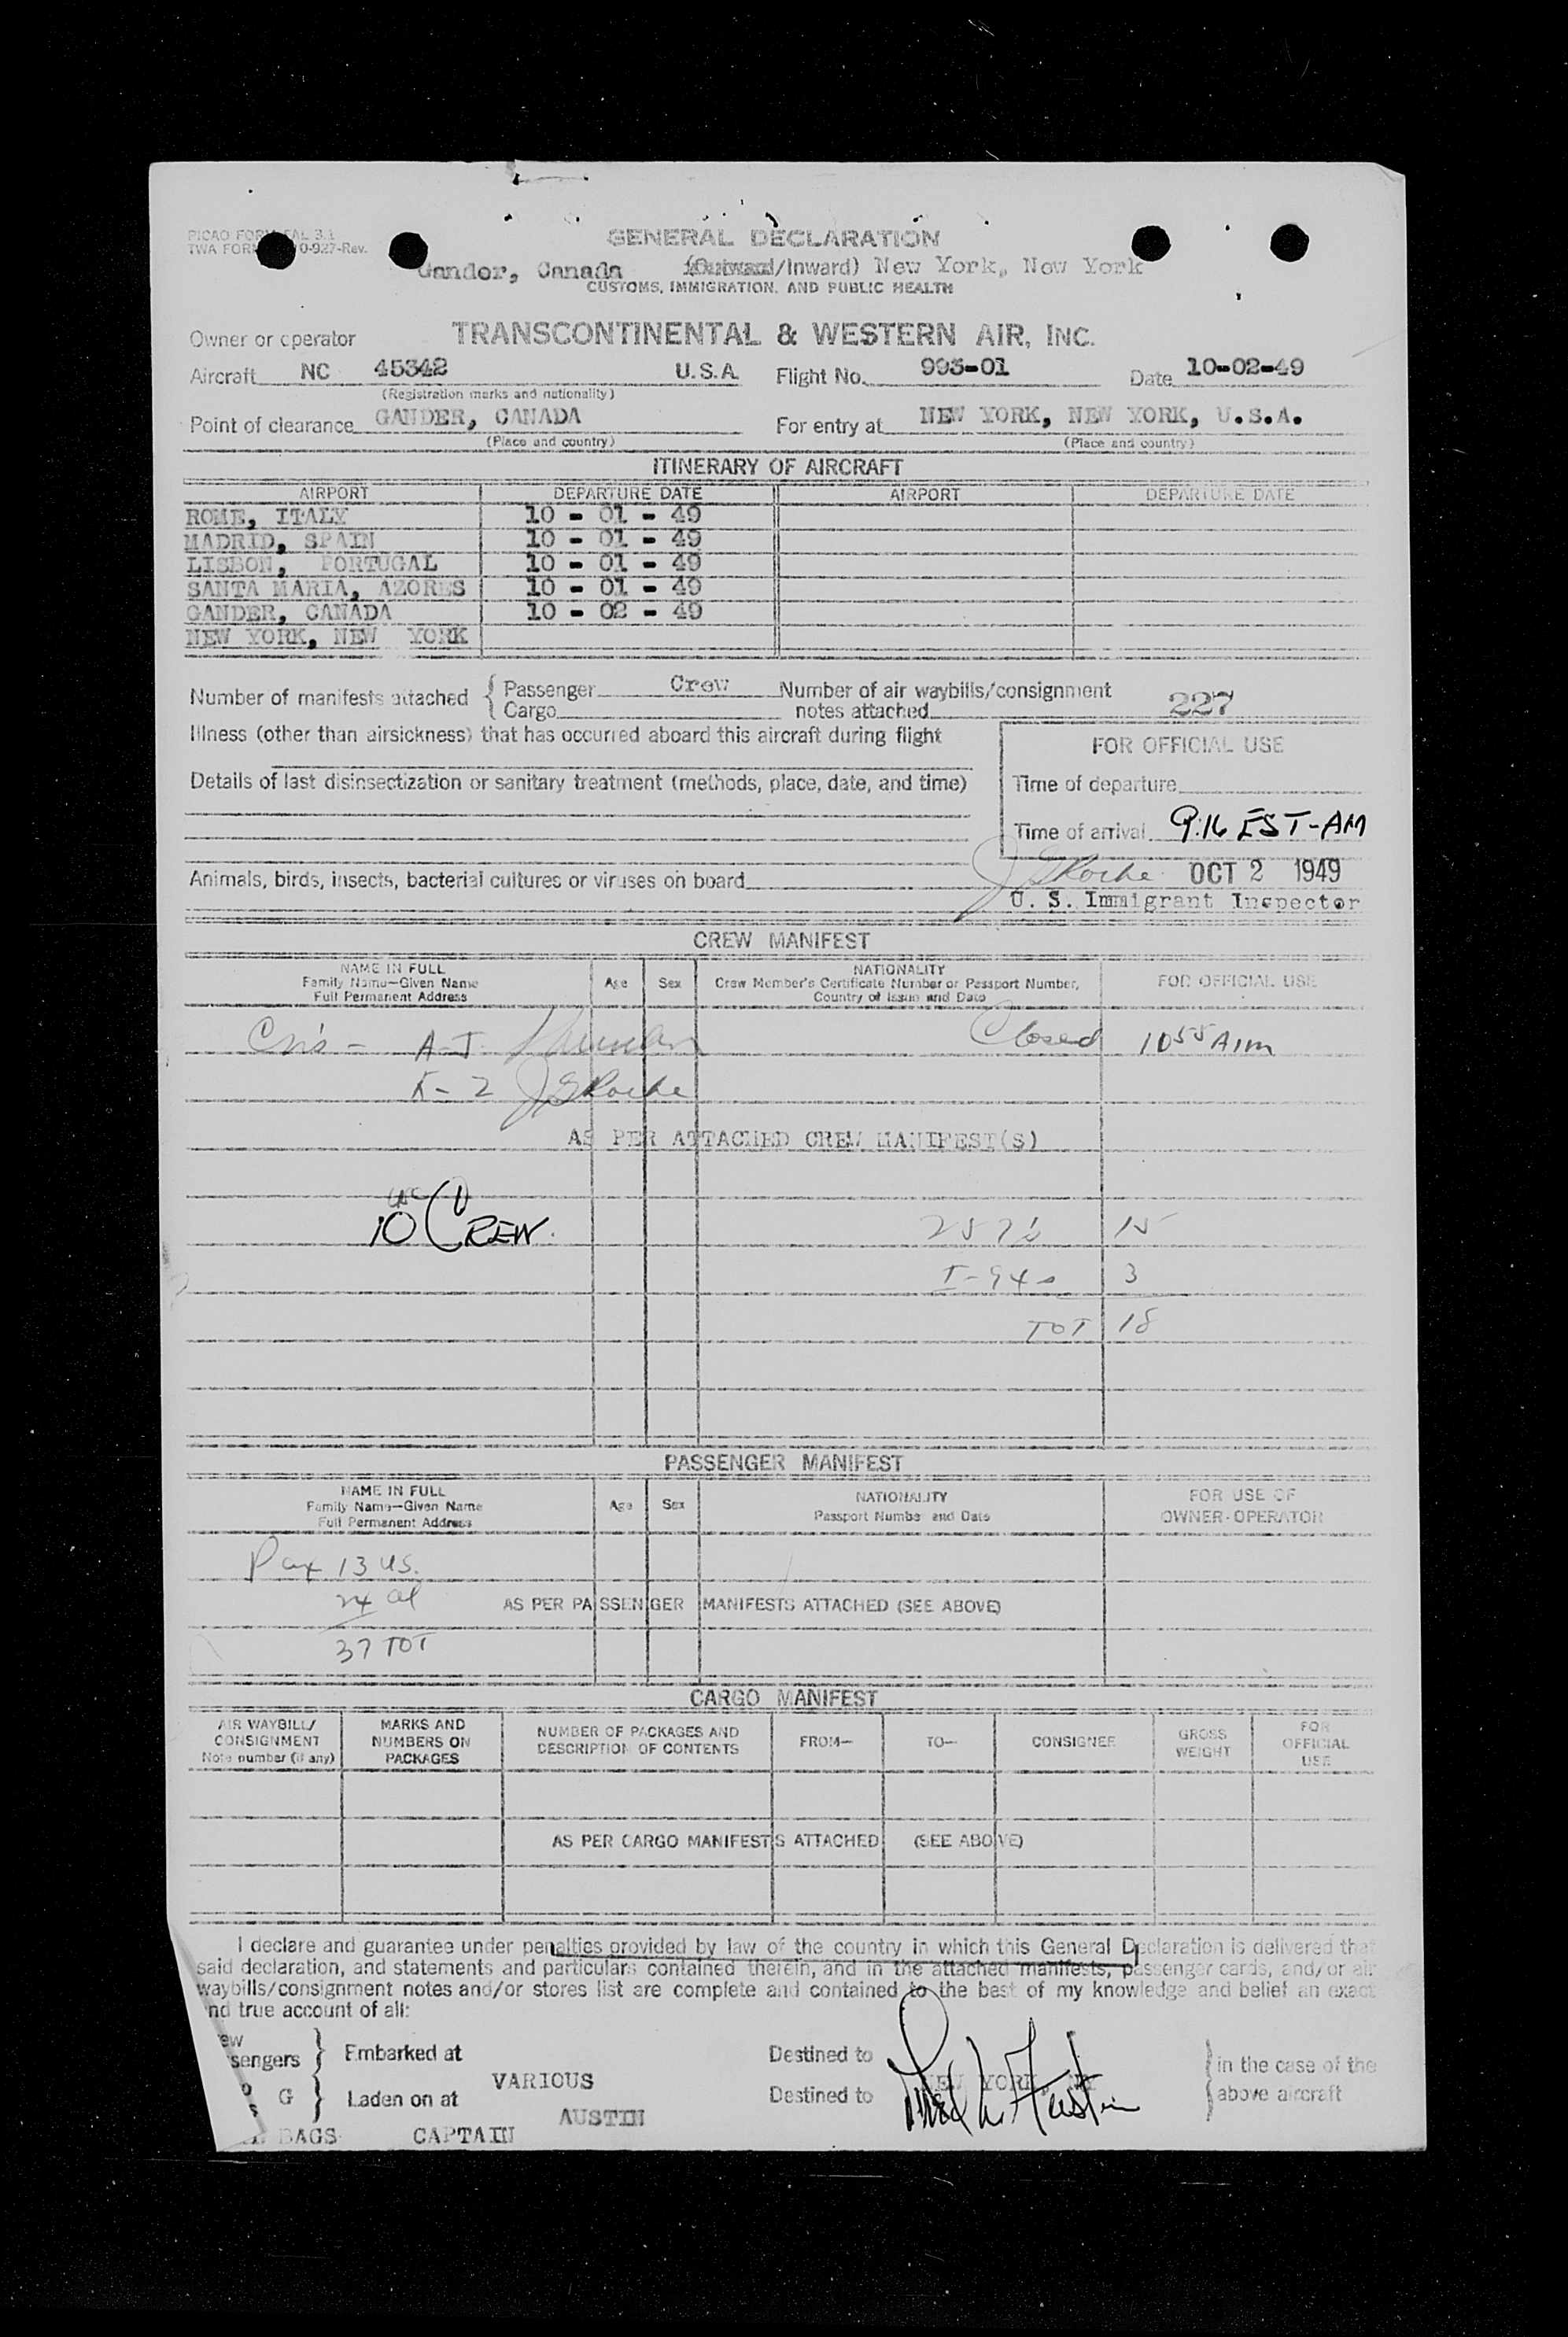 PICAO FORM FAL 3.1
TWA FORM 0-927-Rev.
GENERAL DECLARATION
Gander, Canada (Outward/Inward) New York, New York
CUSTOMS, IMMIGRATION, AND PUBLIC HEALTH
Owner or operator TRANSCONTINENTAL & WESTERN AIR, INC.
Aircraft NC 45342 U.S.A. Flight No. 993-01 Date 10-02-49
(Registration marks and nationality)
Point of clearance GANDER, CANADA For entry at NEW YORK, NEW YORK, U.S.A.
(Place and country) (Place and country)
ITINERARY OF AIRCRAFT
AIRPORT DEPARTURE DATE AIRPORT DEPARTURE DATE
ROME, ITALY 10 - 01 - 49
MADRID, SPAIN 10 - 01 - 49
LISBON, PORTUGAL 10 - 01 - 49
SANTA MARIA, AZORES 10 - 01 - 49
GANDER, CANADA 10 - 02 - 49
NEW YORK, NEW YORK
Number of manifests attached { Passenger Crew Number of air waybills/consignment
Cargo notes attached 227
Illness (other than airsickness) that has occurred aboard this aircraft during flight
FOR OFFICIAL USE
Details of last disinsectization or sanitary treatment (methods, place, date, and time)
Time of departure
Time of arrival 9:16 EST-AM
Animals, birds, insects, bacterial cultures or viruses on board
J G Roche OCT 2 1949
U. S. Immigrant Inspector
CREW MANIFEST
NAME IN FULL
Family Name—Given Name
Full Permanent Address
Age Sex
NATIONALITY
Crew Member's Certificate Number or Passport Number,
Country of Issue and Date
FOR OFFICIAL USE
A-J Closed 10 55 AM
J G Roche
AS PER ATTACHED CREW MANIFEST(S)
10 CREW.
15
I-94s 3
TOT 18
PASSENGER MANIFEST
NAME IN FULL
Family Name—Given Name
Full Permanent Address
Age Sex
NATIONALITY
Passport Number and Date
FOR USE OF
OWNER-OPERATOR
Pax 13 US.
24 al
AS PER PASSENGER MANIFESTS ATTACHED (SEE ABOVE)
37 TOT
CARGO MANIFEST
AIR WAYBILL/
CONSIGNMENT
Note number (if any)
MARKS AND
NUMBERS ON
PACKAGES
NUMBER OF PACKAGES AND
DESCRIPTION OF CONTENTS
FROM— TO— CONSIGNEE
GROSS
WEIGHT
FOR
OFFICIAL
USE
AS PER CARGO MANIFESTS ATTACHED (SEE ABOVE)
I declare and guarantee under penalties provided by law of the country in which this General Declaration is delivered that
said declaration, and statements and particulars contained therein, and in the attached manifests, passenger cards, and/or air
waybills/consignment notes and/or stores list are complete and contained to the best of my knowledge and belief an exact
nd true account of all:
ew
sengers } Embarked at Destined to } in the case of the
VARIOUS NEW YORK, NY
G } Laden on at Destined to above aircraft
AUSTIN
BAGS CAPTAIN